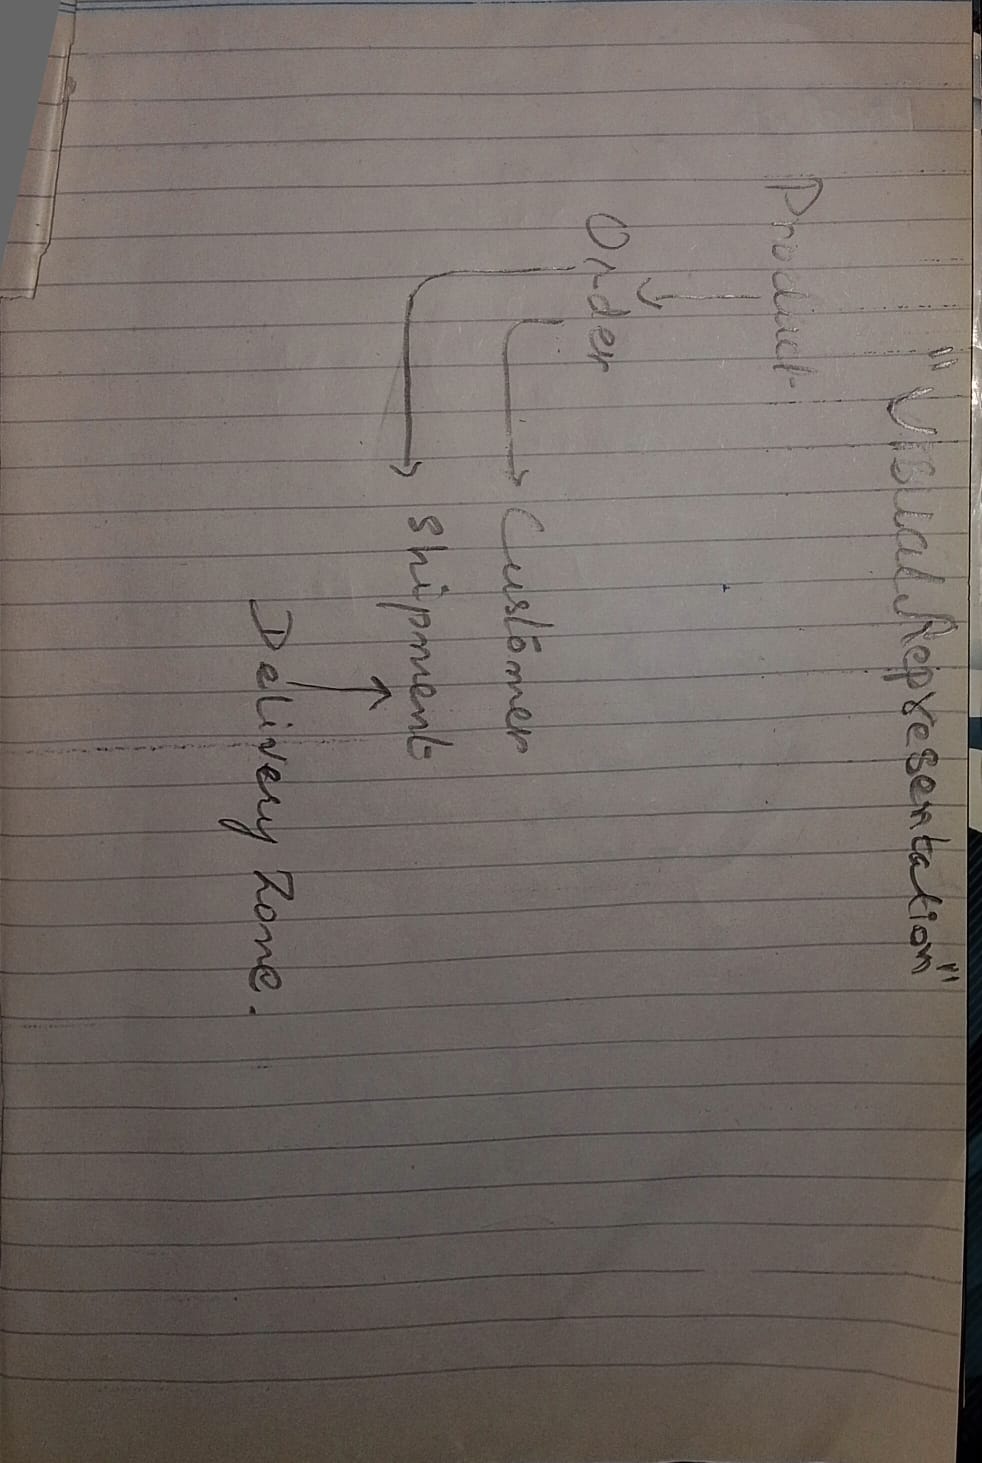 "Visual Representation"
Product
Order
Customer
Shipment
Delivery Zone.